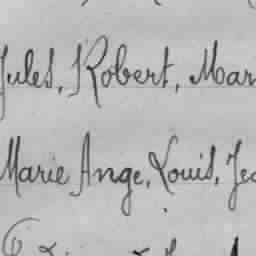 Jules, Robert, Mar
Marie Ange, Louis, Jea